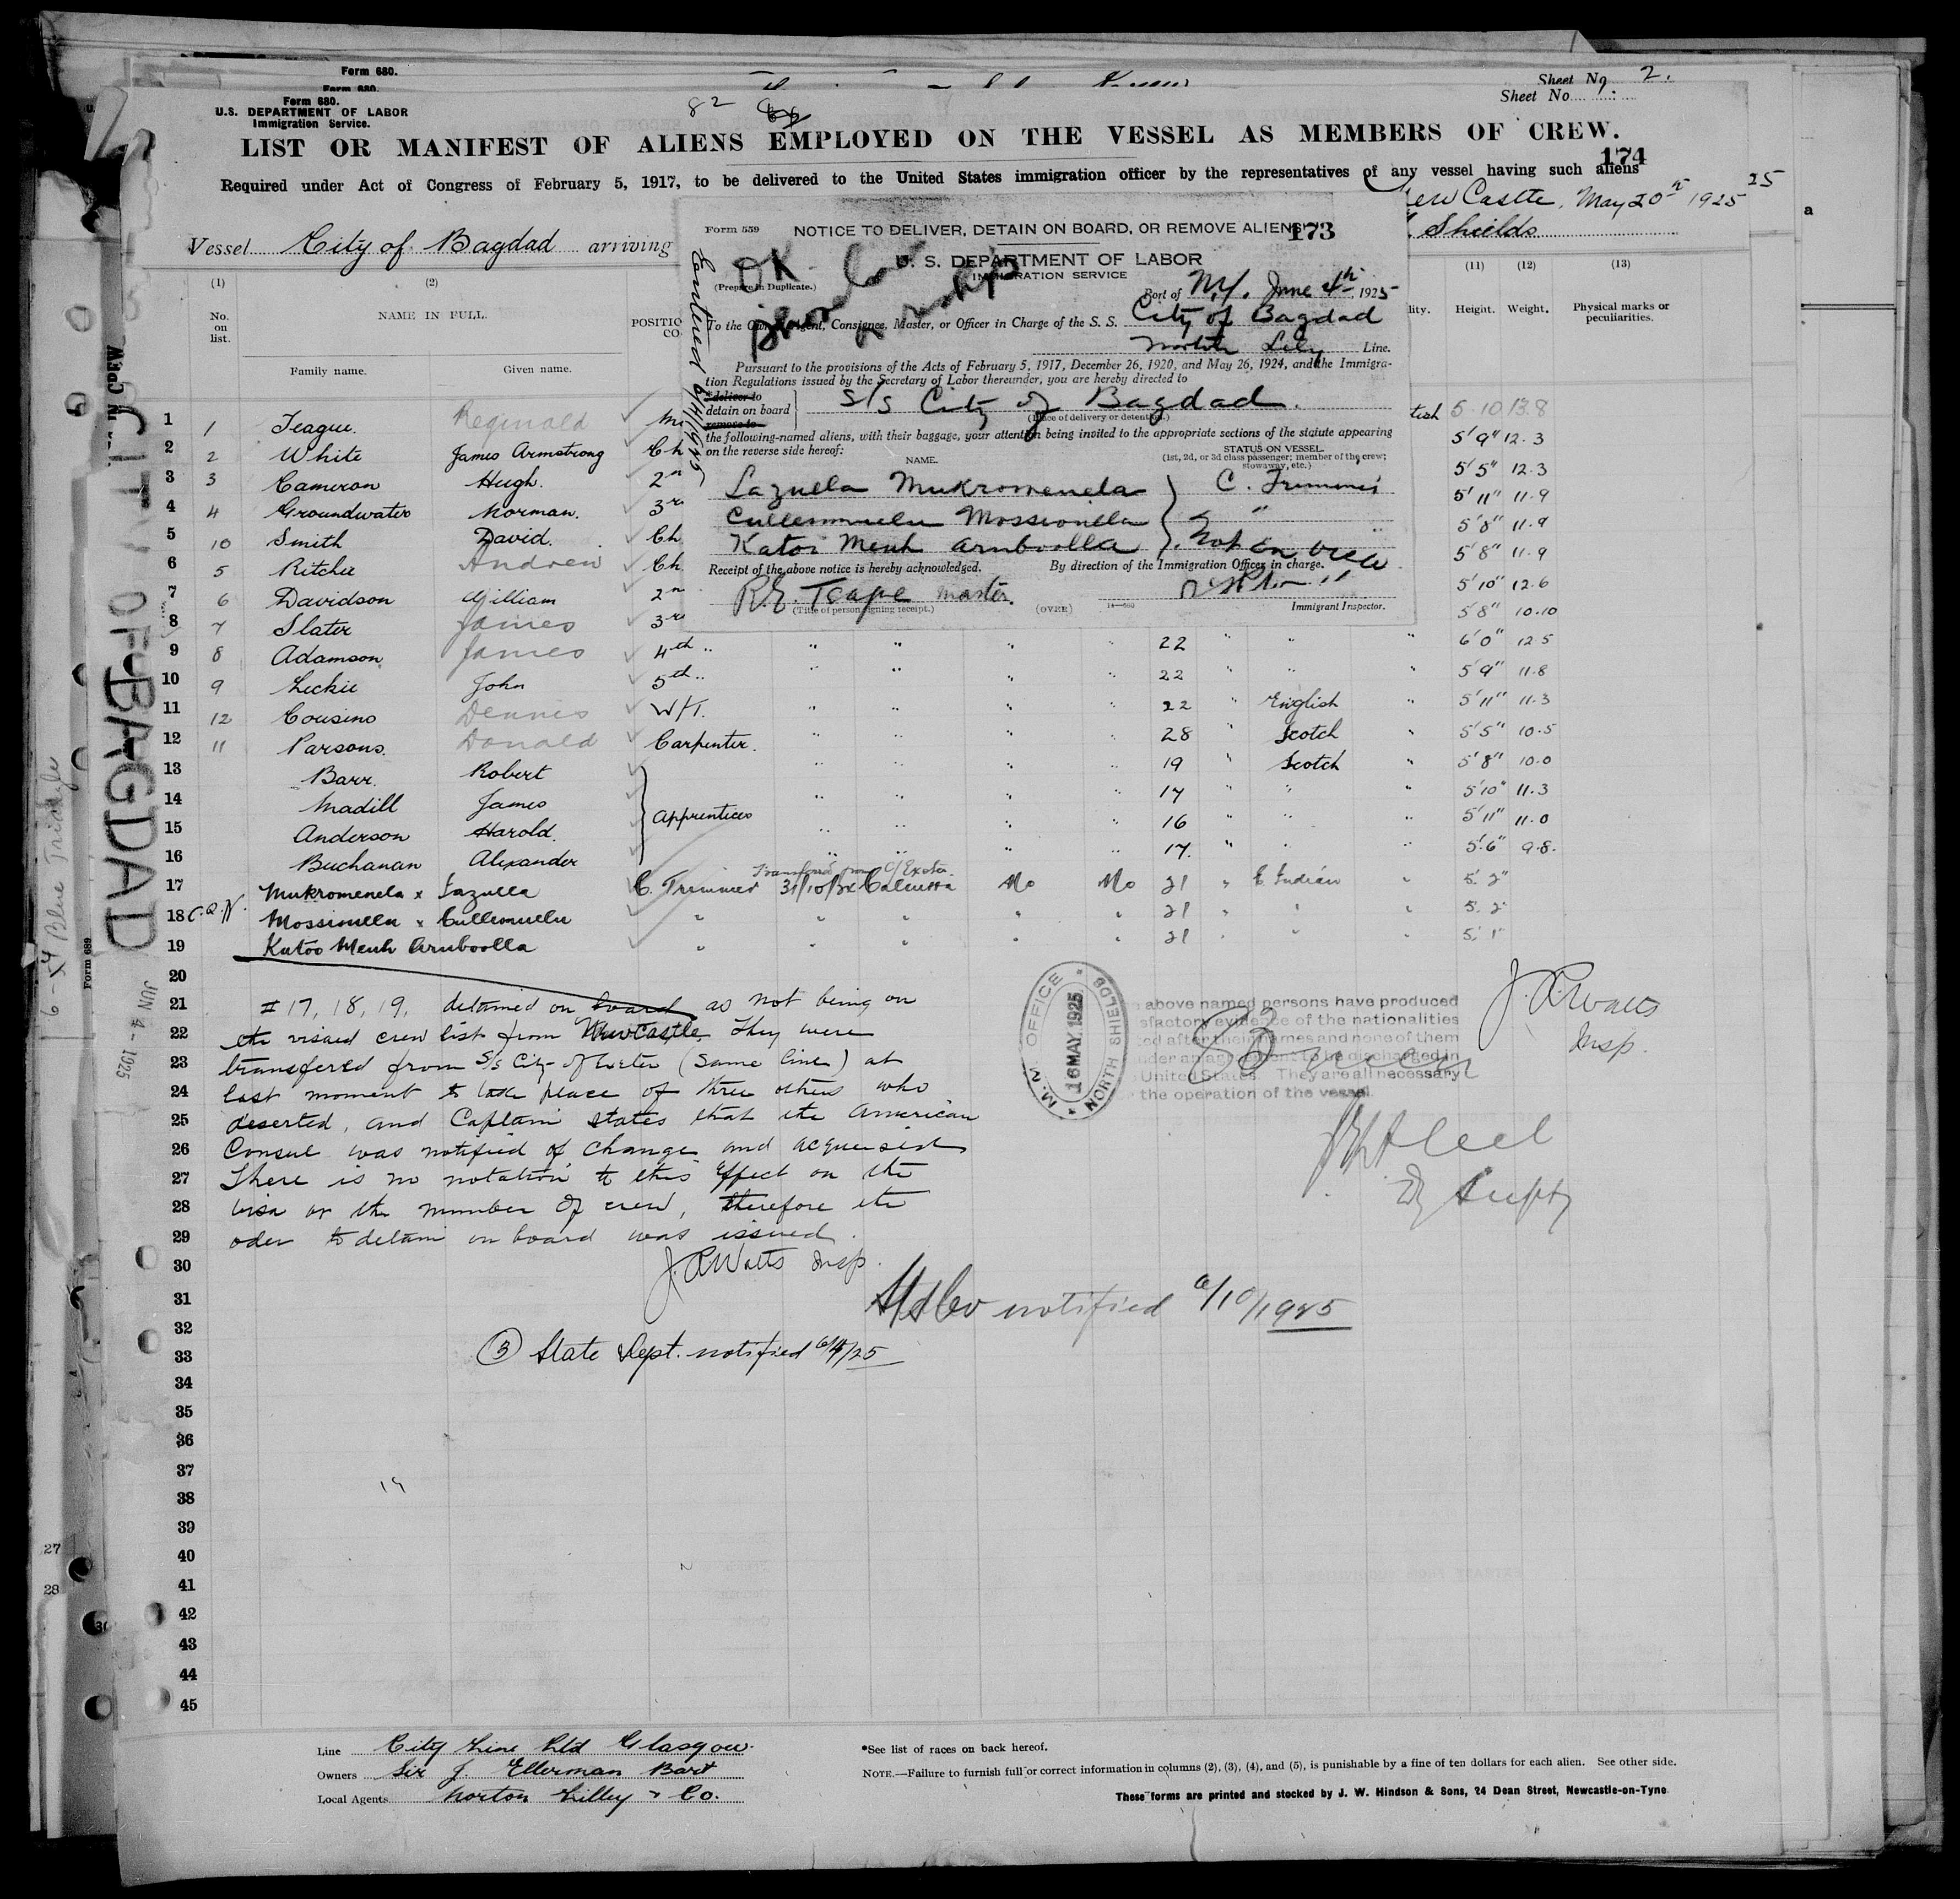 Form 680.
Sheet No. 2.
Form 680.
Form 680.
U.S. DEPARTMENT OF LABOR
Immigration Service.
Sheet No.
82
LIST OR MANIFEST OF ALIENS EMPLOYED ON THE VESSEL AS MEMBERS OF CREW.
174
Required under Act of Congress of February 5, 1917, to be delivered to the United States immigration officer by the representatives of any vessel having such aliens
25
ew Castle, May 20th 1925
Vessel City of Bagdad arriving
Shields
Form 559
NOTICE TO DELIVER, DETAIN ON BOARD, OR REMOVE ALIENS
173
U. S. DEPARTMENT OF LABOR
IMMIGRATION SERVICE
OK
(Prepare in Duplicate.)
Port of N.Y. June 4th, 1925
To the Owner, Agent, Consignee, Master, or Officer in Charge of the S. S. City of Bagdad
Line.
Pursuant to the provisions of the Acts of February 5, 1917, December 26, 1920, and May 26, 1924, and the Immigra-
tion Regulations issued by the Secretary of Labor thereunder, you are hereby directed to
deliver to
detain on board
remove to
S/S City of Bagdad.
(Place of delivery or detention.)
the following-named aliens, with their baggage, your attention being invited to the appropriate sections of the statute appearing
on the reverse side hereof:
NAME.
STATUS ON VESSEL.
(1st, 2d, or 3d class passenger; member of the crew; stowaway, etc.)
Lazulla Mukromenela C. Trimmer
Cullemuelu Mossionlla "
Katoi Menh Arnboolla
Receipt of the above notice is hereby acknowledged.
By direction of the Immigration Officer in charge.
R.E. Teague Master.
(Title of person signing receipt.)
(OVER)
14—560
Immigrant Inspector.
(1) (2) (11) (12) (13)
No. on list.
NAME IN FULL.
POSITIO
CO
lity. Height. Weight. Physical marks or peculiarities.
Family name. Given name.
1 1 Teague. Reginald tish 5 10 13.8
2 2 White James Armstrong Ch 5'9" 12.3
3 3 Cameron Hugh. 2n 5'5" 12.3
4 4 Groundwater Norman. 3r 5'11" 11.9
5 10 Smith David. Ch. 5'8" 11.9
6 5 Ritchie Andrew Ch. 5'8" 11.9
7 6 Davidson William 2n 5'10" 12.6
8 7 Slater James 3r 5'8" 10.10
9 8 Adamson James 4th " " " " " 22 " " " 6'0" 12.5
10 9 Leckie John 5th " " " " " 22 " " " 5'9" 11.8
11 12 Cousins Dennis W/T. " " " " 22 " English " 5'11" 11.3
12 11 Parsons. Donald Carpenter. " " " " 28 " Scotch " 5'5" 10.5
13 Barr. Robert " " " " 19 " Scotch " 5'8" 10.0
14 Madill James " " " " 17 " " " 5'10" 11.3
15 Anderson Harold. Apprentices " " " " 16 " " " 5'11" 11.0
16 Buchanan Alexander " " " " 17. " " " 5'6" 9.8.
17 Mukromenela x Lazulla C. Trimmer Calcutta No No 21 " E. Indian " 5' 2"
18 Mossionlla x Cullemuelu " " " " " 21 " " " 5. 2"
19 Katoo Menh Arnboolla " " " " " 21 " " " 5. 1"
20
21 #17, 18, 19, detained on board as not being on
22 the visaed crew list from NewCastle. They were
23 transferred from S/s City of Exeter (same line) at
24 last moment to take place of three others who
25 deserted, and Captain states that the American
26 Consul was notified of change and acquiesced
27 There is no notation to this effect on the
28 visa or the number of crew, therefore the
29 oder to detain on board was issued.
30 J. A. Watts Insp.
31
32
33
34
35
36
37
38
39
40
41
42
43
44
45
above named persons have produced
sfactory evidence of the nationalities
ed after their names and none of them
der an agreement to be discharged in
United States. They are all necessary
the operation of the vessel.
M. M. OFFICE
16 MAY. 1925
NORTH SHIELDS
83 men
J. A. Watts
Insp.
notified 6/10/1925
③ State Dept. notified 6/9/25
19
CITY OF BAGDAD
JUN 4 - 1925
Form 689
Blue Triangle
IN CREW
27
28
Line City Line Ltd Glasgow.
Owners Sir J. Ellerman Bart
Local Agents Norton Lilley & Co.
*See list of races on back hereof.
NOTE.—Failure to furnish full or correct information in columns (2), (3), (4), and (5), is punishable by a fine of ten dollars for each alien. See other side.
These forms are printed and stocked by J. W. Hindson & Sons, 24 Dean Street, Newcastle-on-Tyne